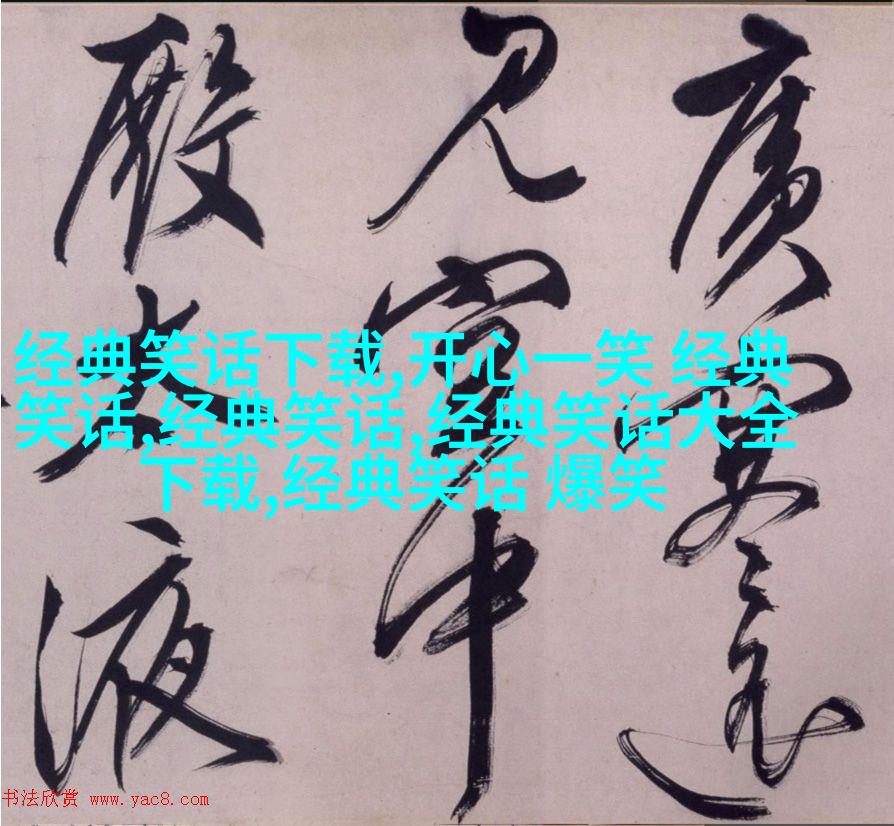 廣
見宮中
殿太液
经典笑话下载,开心一笑 经典
笑话,经典笑话,经典笑话大全
下载,经典笑话 爆笑
书法欣赏 www.yac8.com